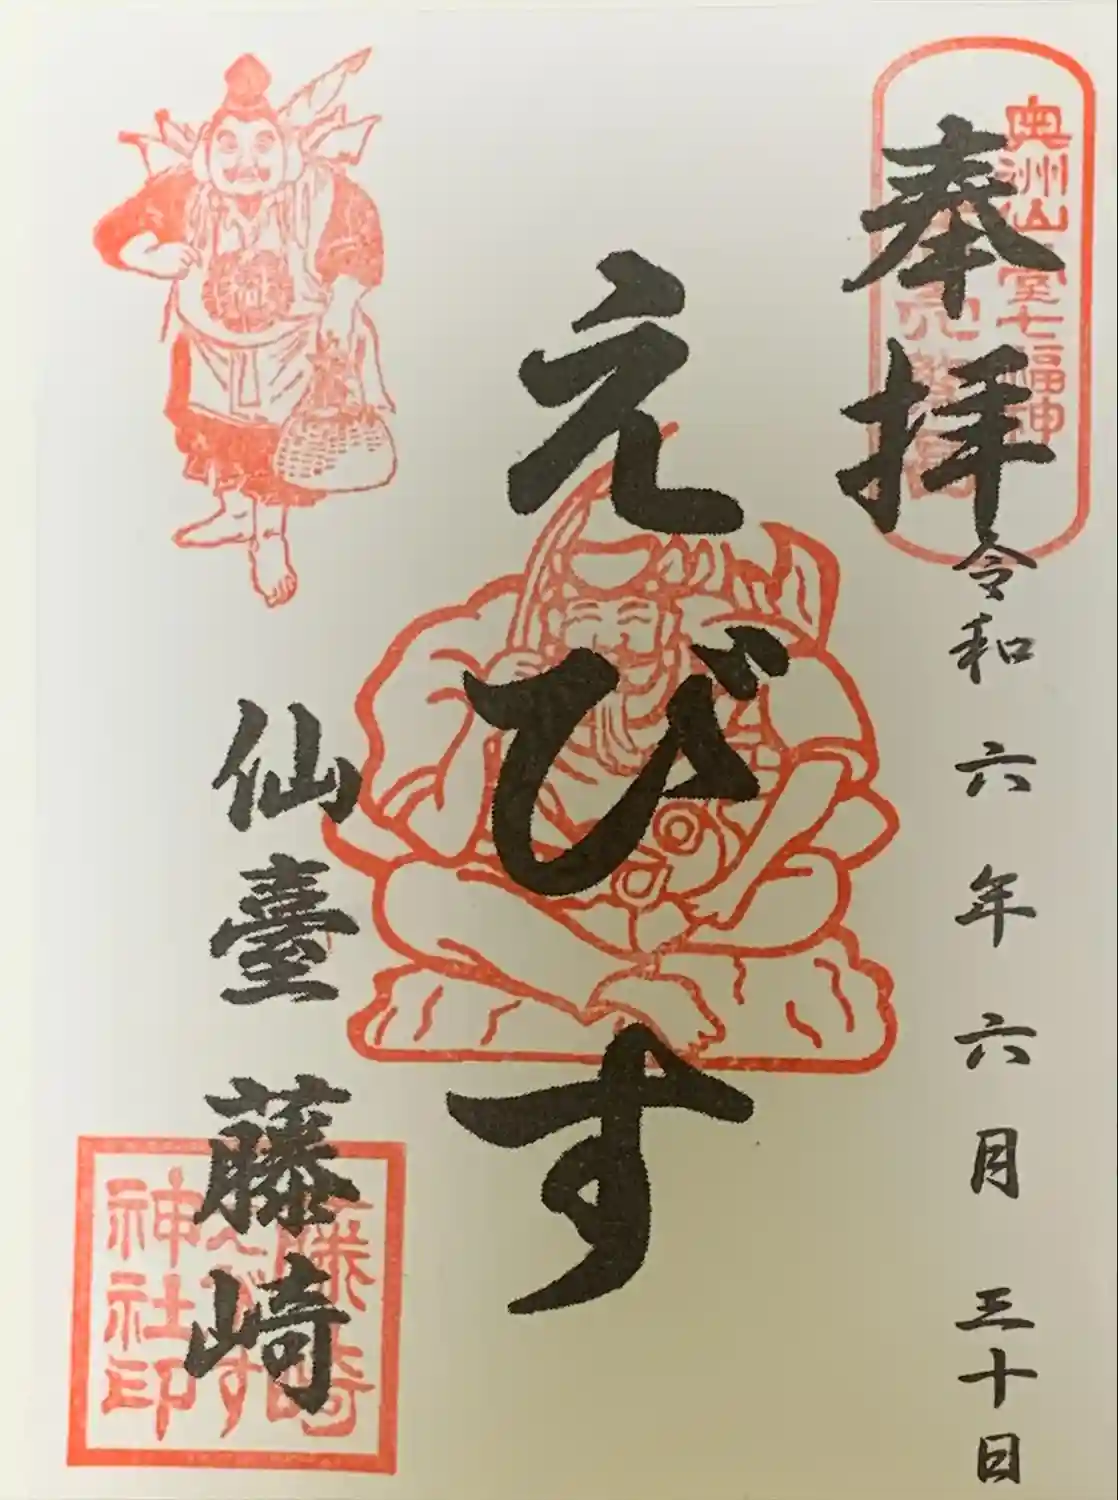 奉拝
奥州仙臺七福神
令和六年六月三十日
えびす
仙臺 藤崎
藤崎
えびす
神社印